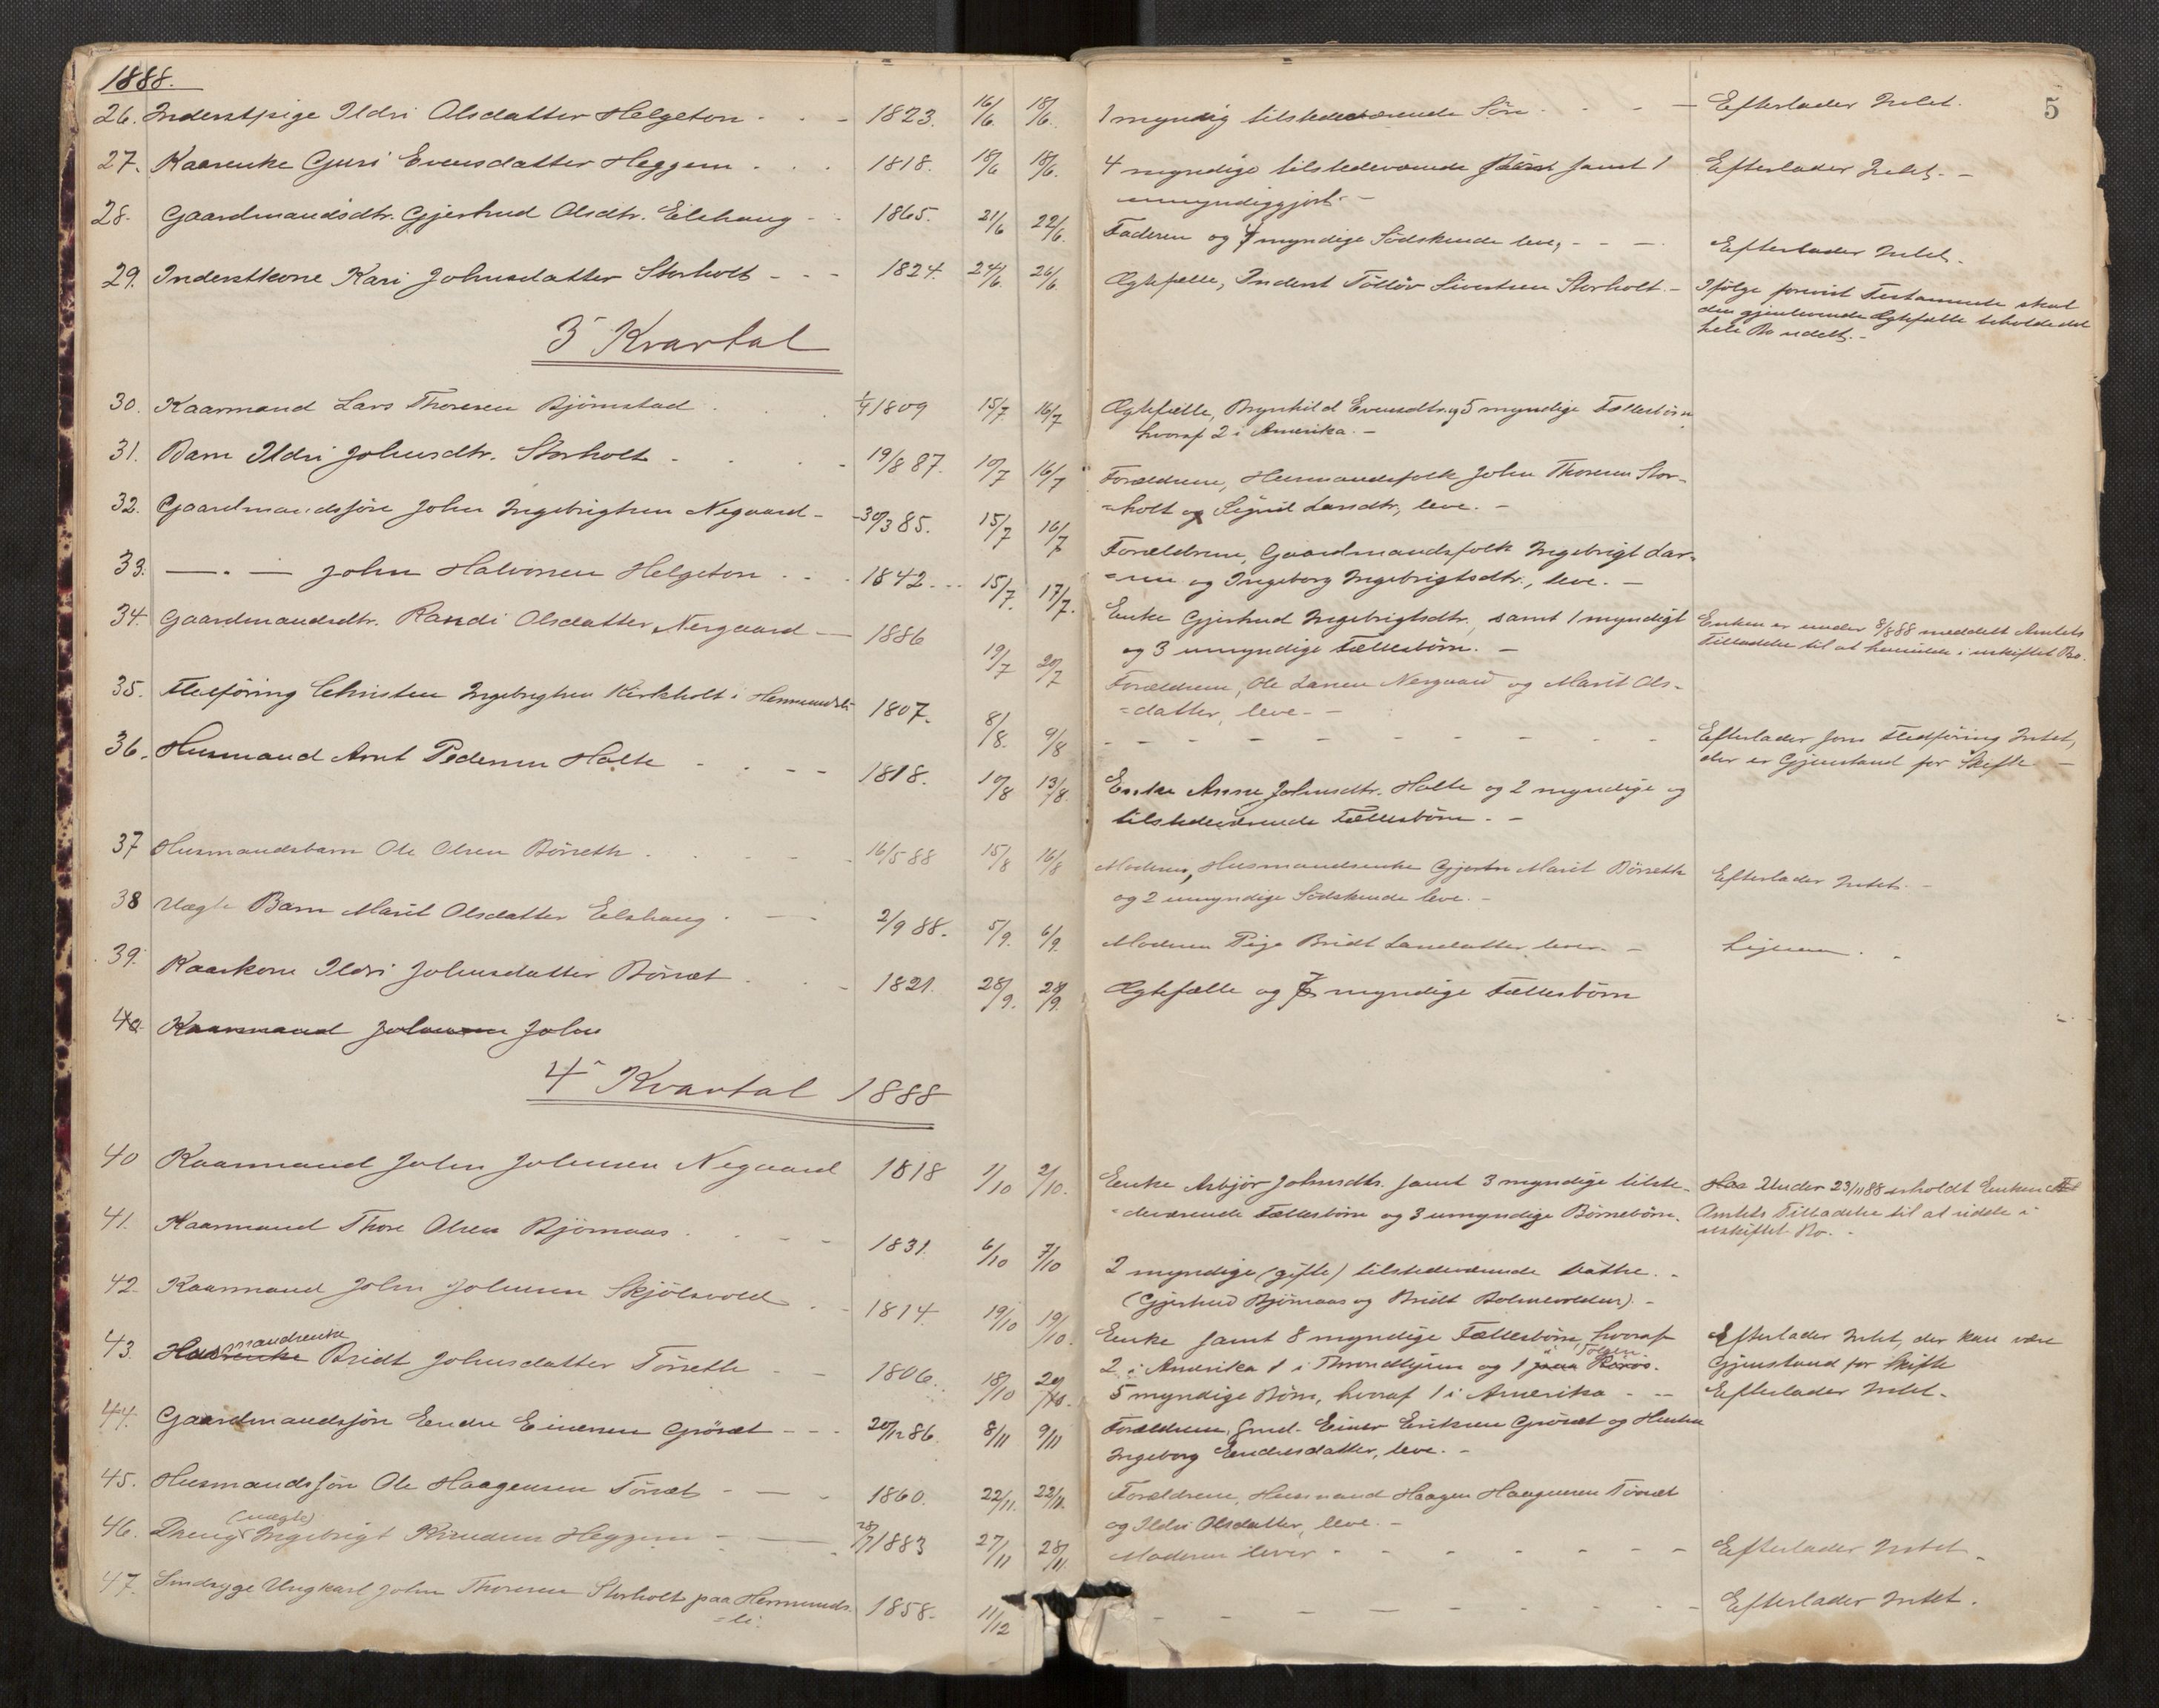 1888.
5
26. Inderstpige Ildri Olsdatter Helgeton - - - 1823. 16/6. 18/6. 1 myndig tilstedeværende Søn - - - Efterlader Intet.
27. Kaarenke Guri Evensdatter Heggem . . . 1818. 18/6 18/6. 4 myndige tilstedeværende Børn samt 1 Efterlader Intet. -
umyndiggjort. -
28. Gaardmandsdtr. Gjertrud Olsdtr. Elshaug - - 1865. 21/6 22/6. Faderen og 7 myndige Södskende leve, - - - Efterlader Intet.
29. Inderstkone Kari Johnsdatter Storholt - - - 1824. 24/6. 26/6 Ægtefælle, Inderst Tölløv Sivertsen Storholt. - Ifølge forevist Testamente skal
den gjenlevende Ægtefælle beholde det
hele Bo udelt. -
3 Kvartal
30. Kaarmand Lars Thoresen Björnstad . . . 1/4 1809 15/7. 16/7 Ægtefælle, Brynhild Evensdtr. og 5 myndige Fællesbörn,
hvoraf 2 i Amerika. -
31. Barn Ildri Johnsdtr. Storholt - . . - 19/8 87. 10/7 16/7 Forældrene, Husmandsfolk John Thoresen Stor-
=holt og Sigrid Larsdtr., leve. -
32. Gaardmandssön John Ingebrigtsen Negaard - - 30/3 85. 15/7 16/7 Forældrene, Gaardmandsfolk Ingebrigt Lar-
=sen og Ingeborg Ingebrigtsdtr., leve. -
33. — . — John Halvorsen Helgeton . . . 1842 . . . 15/7. 17/7. Enke Gjertrud Ingebrigtsdtr., samt 1 myndigt Enken er under 8/8 88 meddelt Amtets
og 3 umyndige Fællesbörn. - Tilladelse til at hensidde i uskiftet Bo.
34. Gaardmandsdtr. Randi Olsdatter Nergaard - 1886 19/7 20/7 Forældrene, Ole Larsen Nergaard og Marit Ols-
=datter, leve. -
35. Fledføring Christen Ingebrigtsen Kirkholt i Hermundsli 1807. 8/8. 9/8 - - - - - - - - Efterlader som Fledføring Intet,
der er Gjenstand for Skifte -
36. Husmand Arnt Pedersen Holte - . - - 1818. 10/8 13/8. Enke Anne Johnsdtr. Holte og 2 myndige og
tilstedeværende Fællesbörn. -
37 Husmandsbarn Ole Olsen Börseth . . . - - 16/5 88 15/8 16/8 Moderen, Husmandsenke Marit Börseth Efterlader Intet. -
og 2 umyndige Södskende leve. -
38 Uægte Barn Marit Olsdatter Elshaug . - - 2/9 88. 5/9. 6/9. Moderen Pige Bridt Larsdatter lever. - Ligesaa . "
39. Kaarkone Ildri Johnsdatter Börset . . - 1821. 28/9. 29/9. Ægtefælle og 7 myndige Fællesbörn
40. Kaarmand Johnsen John
4 Kvartal 1888
40 Kaarmand John Johnsen Negaard 1818 1/10 2/10. Enke Asbjör Johnsdtr. samt 3 myndige tilste- Under 23/11 88 erholdt Enken
=deværende Fællesbörn og 3 umyndige Börnebörn. Amtets Tilladelse til at sidde i
uskiftet Bo. -
41. Kaarmand Thore Olsen Björnaas . . - - 1831. 6/10 7/10 2 myndige (gifte) tilstedeværende Döttre. -
(Gjertrud Björnaas og Bridt Bolmevolden). -
42. Kaarmand John Johnsen Skjölsvold . - 1814. 19/10 19/10. Enke samt 8 myndige Fællesbörn, hvoraf Efterlader Intet, der kan være
2 i Amerika 1 i Throndhjem og 1 paa Röros. i Tolgen Gjenstand for Skifte
43. Husmandsenke Bridt Johnsdatter Törseth - - 1806. 18/10 20/10. 5 myndige Börn, hvoraf 1 i Amerika - - - Efterlader Intet.
44. Gaardmandssön Endre Einersen Grösæt - - - 20/12 86. 8/11 9/11 Forældrene, Gmd. Einer Eriksen Grösæt og Hustru
Ingeborg Endresdatter, leve. -
45. Husmandssön Ole Haagensen Törsæt - - - 1860. 22/11. 22/11. Forældrene, Husmand Haagen Haagensen Törsæt
og Ildri Olsdatter, leve. -
46. Dreng (uægte) Ingebrigt Knudsen Heggem - - 28/7 1883 27/11 28/11. Moderen lever - - - - - - - Efterlader Intet.
47. Sindsyge Ungkarl John Thoresen Storholt paa Hermunds- 1858. 11/12 - - - - - - - - Efterlader Intet.
=li.